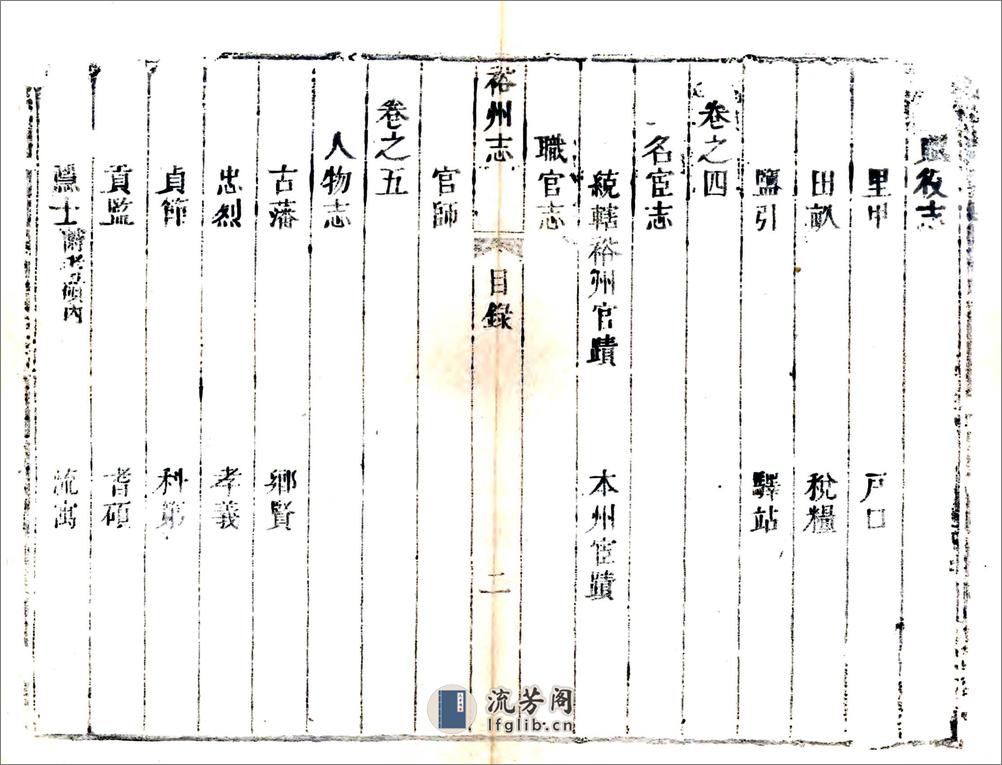 役志
里甲 戸口
田畝 稅糧
鹽引 驛站
卷之四
名宦志
統轄裕州官蹟 本州宦蹟
職官志
裕州志 目錄 二
官師
卷之五
人物志
古藩 鄉賢
忠烈 孝義
貞節 科第
貢監 耆碩
隱士 流寓
流芳阁
lfglib.cn